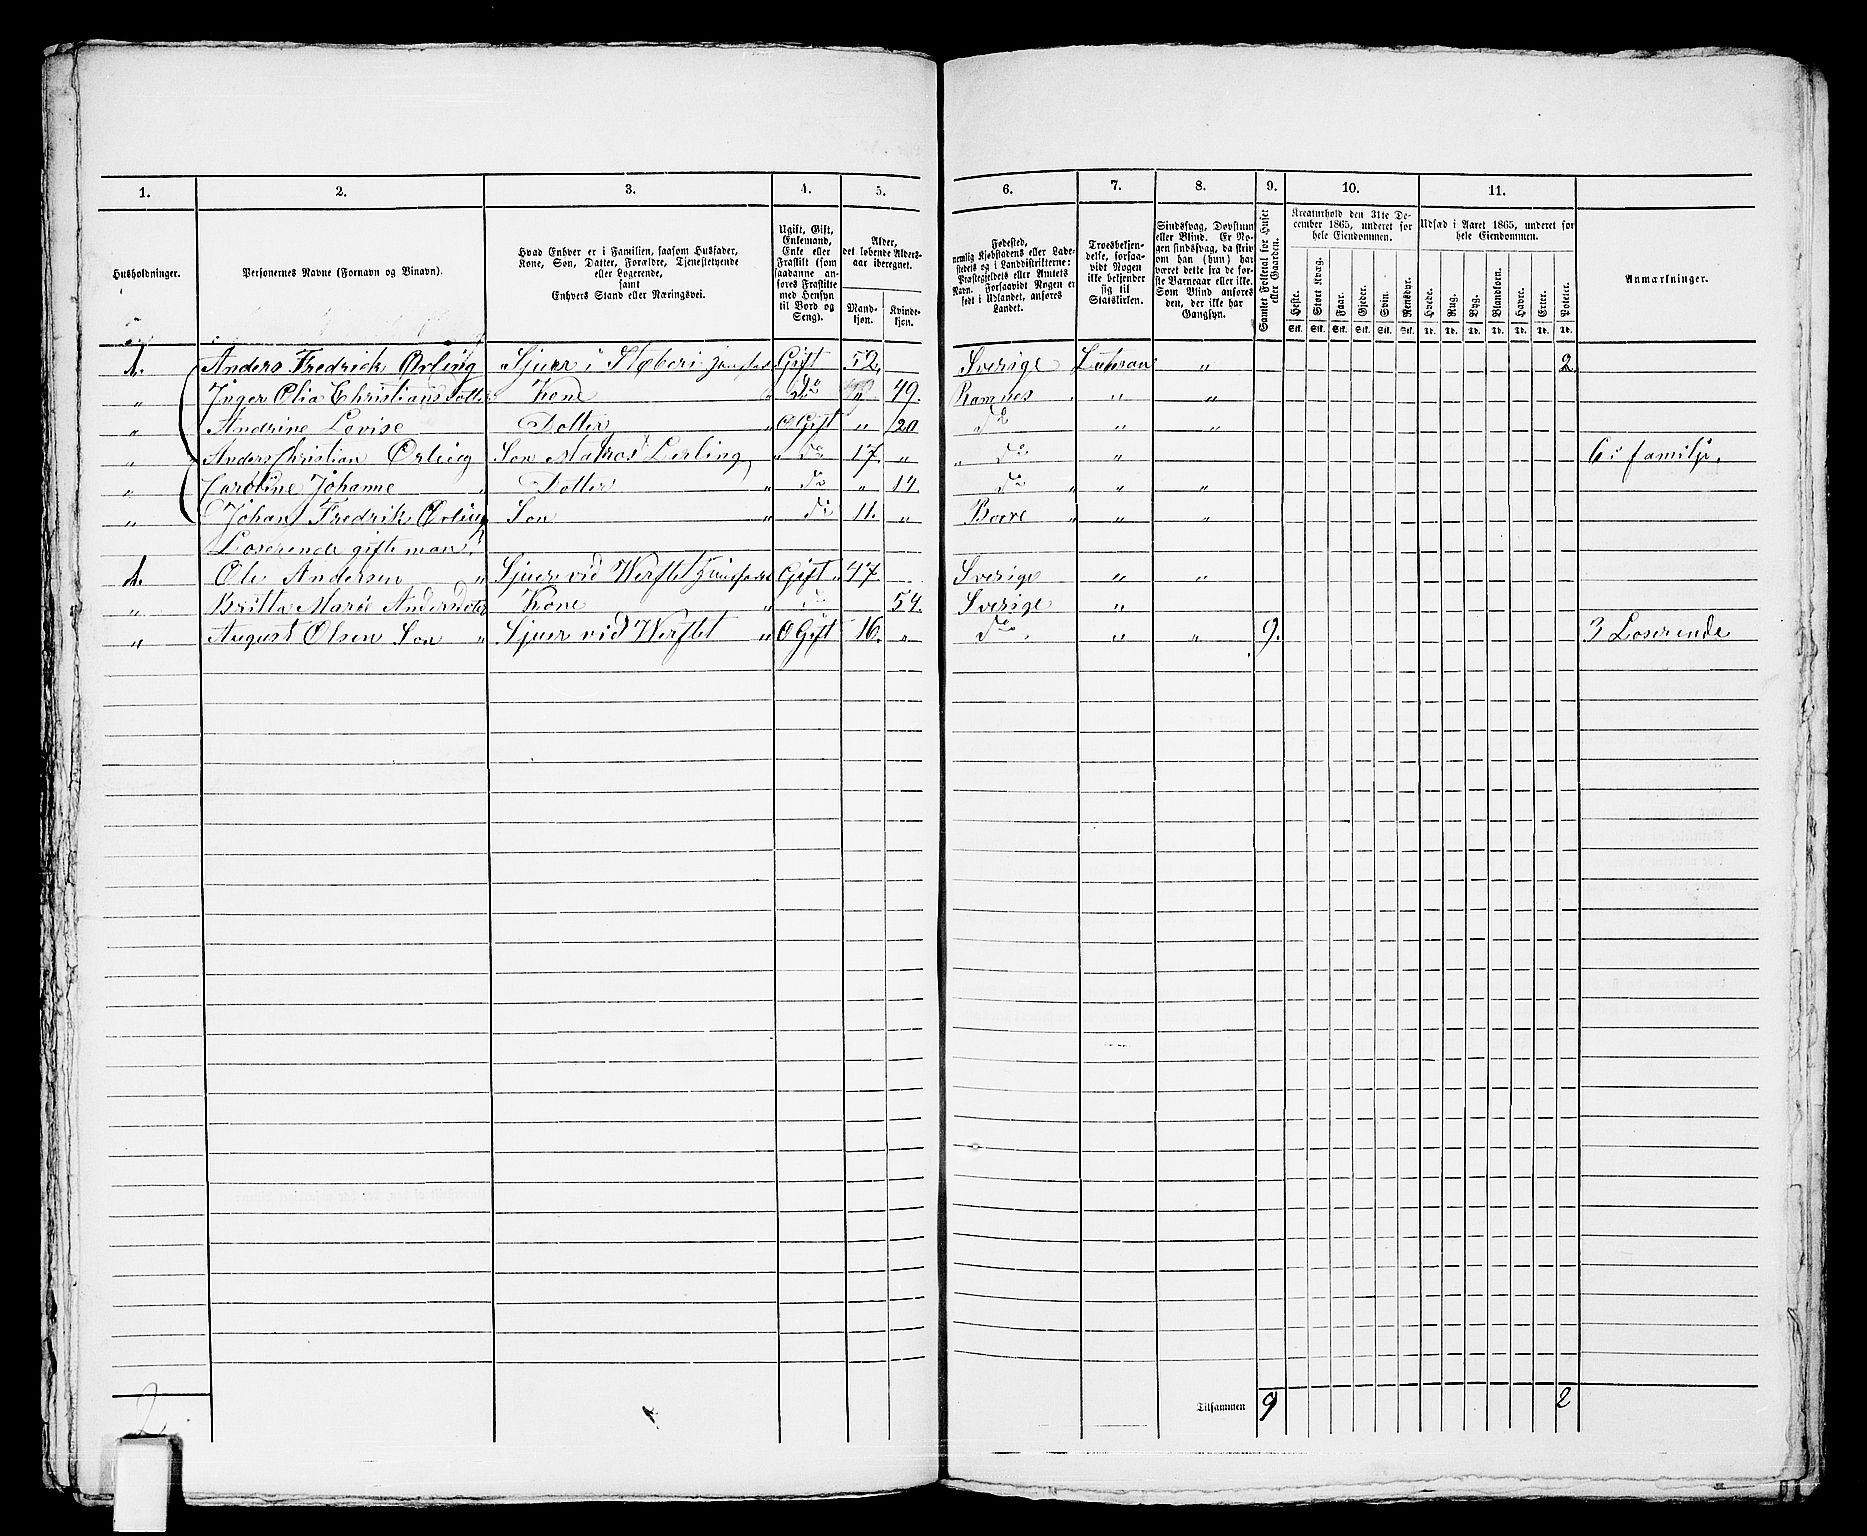 1. 2. 3. 4. 5. 6. 7. 8. 9. 10. 11.
Husholdninger.
Personernes Navne (Fornavn og Binavn).
Hvad Enhver er i Familien, saasom Husfader,
Kone, Søn, Datter, Forældre, Tjenestetyende
eller Logerende,
samt
Enhvers Stand eller Næringsvei.
Ugift, Gift,
Enkemand,
Enke eller
Fraskilt (som
saadanne an-
føres Fraskilte
med Hensyn
til Bord og
Seng).
Alder,
det løbende Alders-
aar iberegnet.
Mand-
kjøn.
Kvinde-
kjøn.
Fødested,
nemlig Kjøbstadens eller Lade-
stedets og i Landdistrikterne:
Præstegjeldets eller Amtets
Navn. Forsaavidt Nogen er
født i Udlandet, anføres
Landet.
Troesbekjen-
delse, forsaa-
vidt Nogen
ikke bekjender
sig til
Statskirken.
Sindssvag, Døvstum
eller Blind. Er No-
gen sindssvag, da skriv
om han (hun) har
været dette fra de før-
ste Barneaar eller ikke.
Som Blind anføres
den, der ikke har
Gangsyn.
Samlet Folketal for Huset
eller Gaarden.
Kreaturhold den 31te De-
cember 1865, underet for
hele Eiendommen.
Heste. Stort Kvæg. Faar. Gjeder. Svin. Rensdyr.
Stk. Stk. Stk. Stk. Stk. Stk.
Udsæd i Aaret 1865, underet for
hele Eiendommen.
Hvede. Rug. Byg. Blandkorn. Havre. Erter. Poteter.
Td. Td. Td. Td. Td. Td. Td.
Anmærkninger.
1. Anders Fredrick Ørling Sjuer i Gift 52 Sverige Luthran " 2
" Inger Olia Christiansdotter Kone do " 49. Ramnes " "
" Andrine Lovise Dotter O Gift " 20 do " "
" Anders Christian Ørling Son Matros do 17 " do " 6 i familje.
" Caroline Johanne Dotter do " 14. do " "
" Johan Fredrik Ørling Son do 11. " Borre " "
Loserende gifte man
1. Ole Andersen Sjuer vid Werftet Gift 47 Sverige " "
" Britta Andersdoter Kone do 54. Sverige "
" August Olsen Son Sjuer vid Werftet O Gift 16. " do " " 9. 3 Loserende
2. Tilsammen 9 2